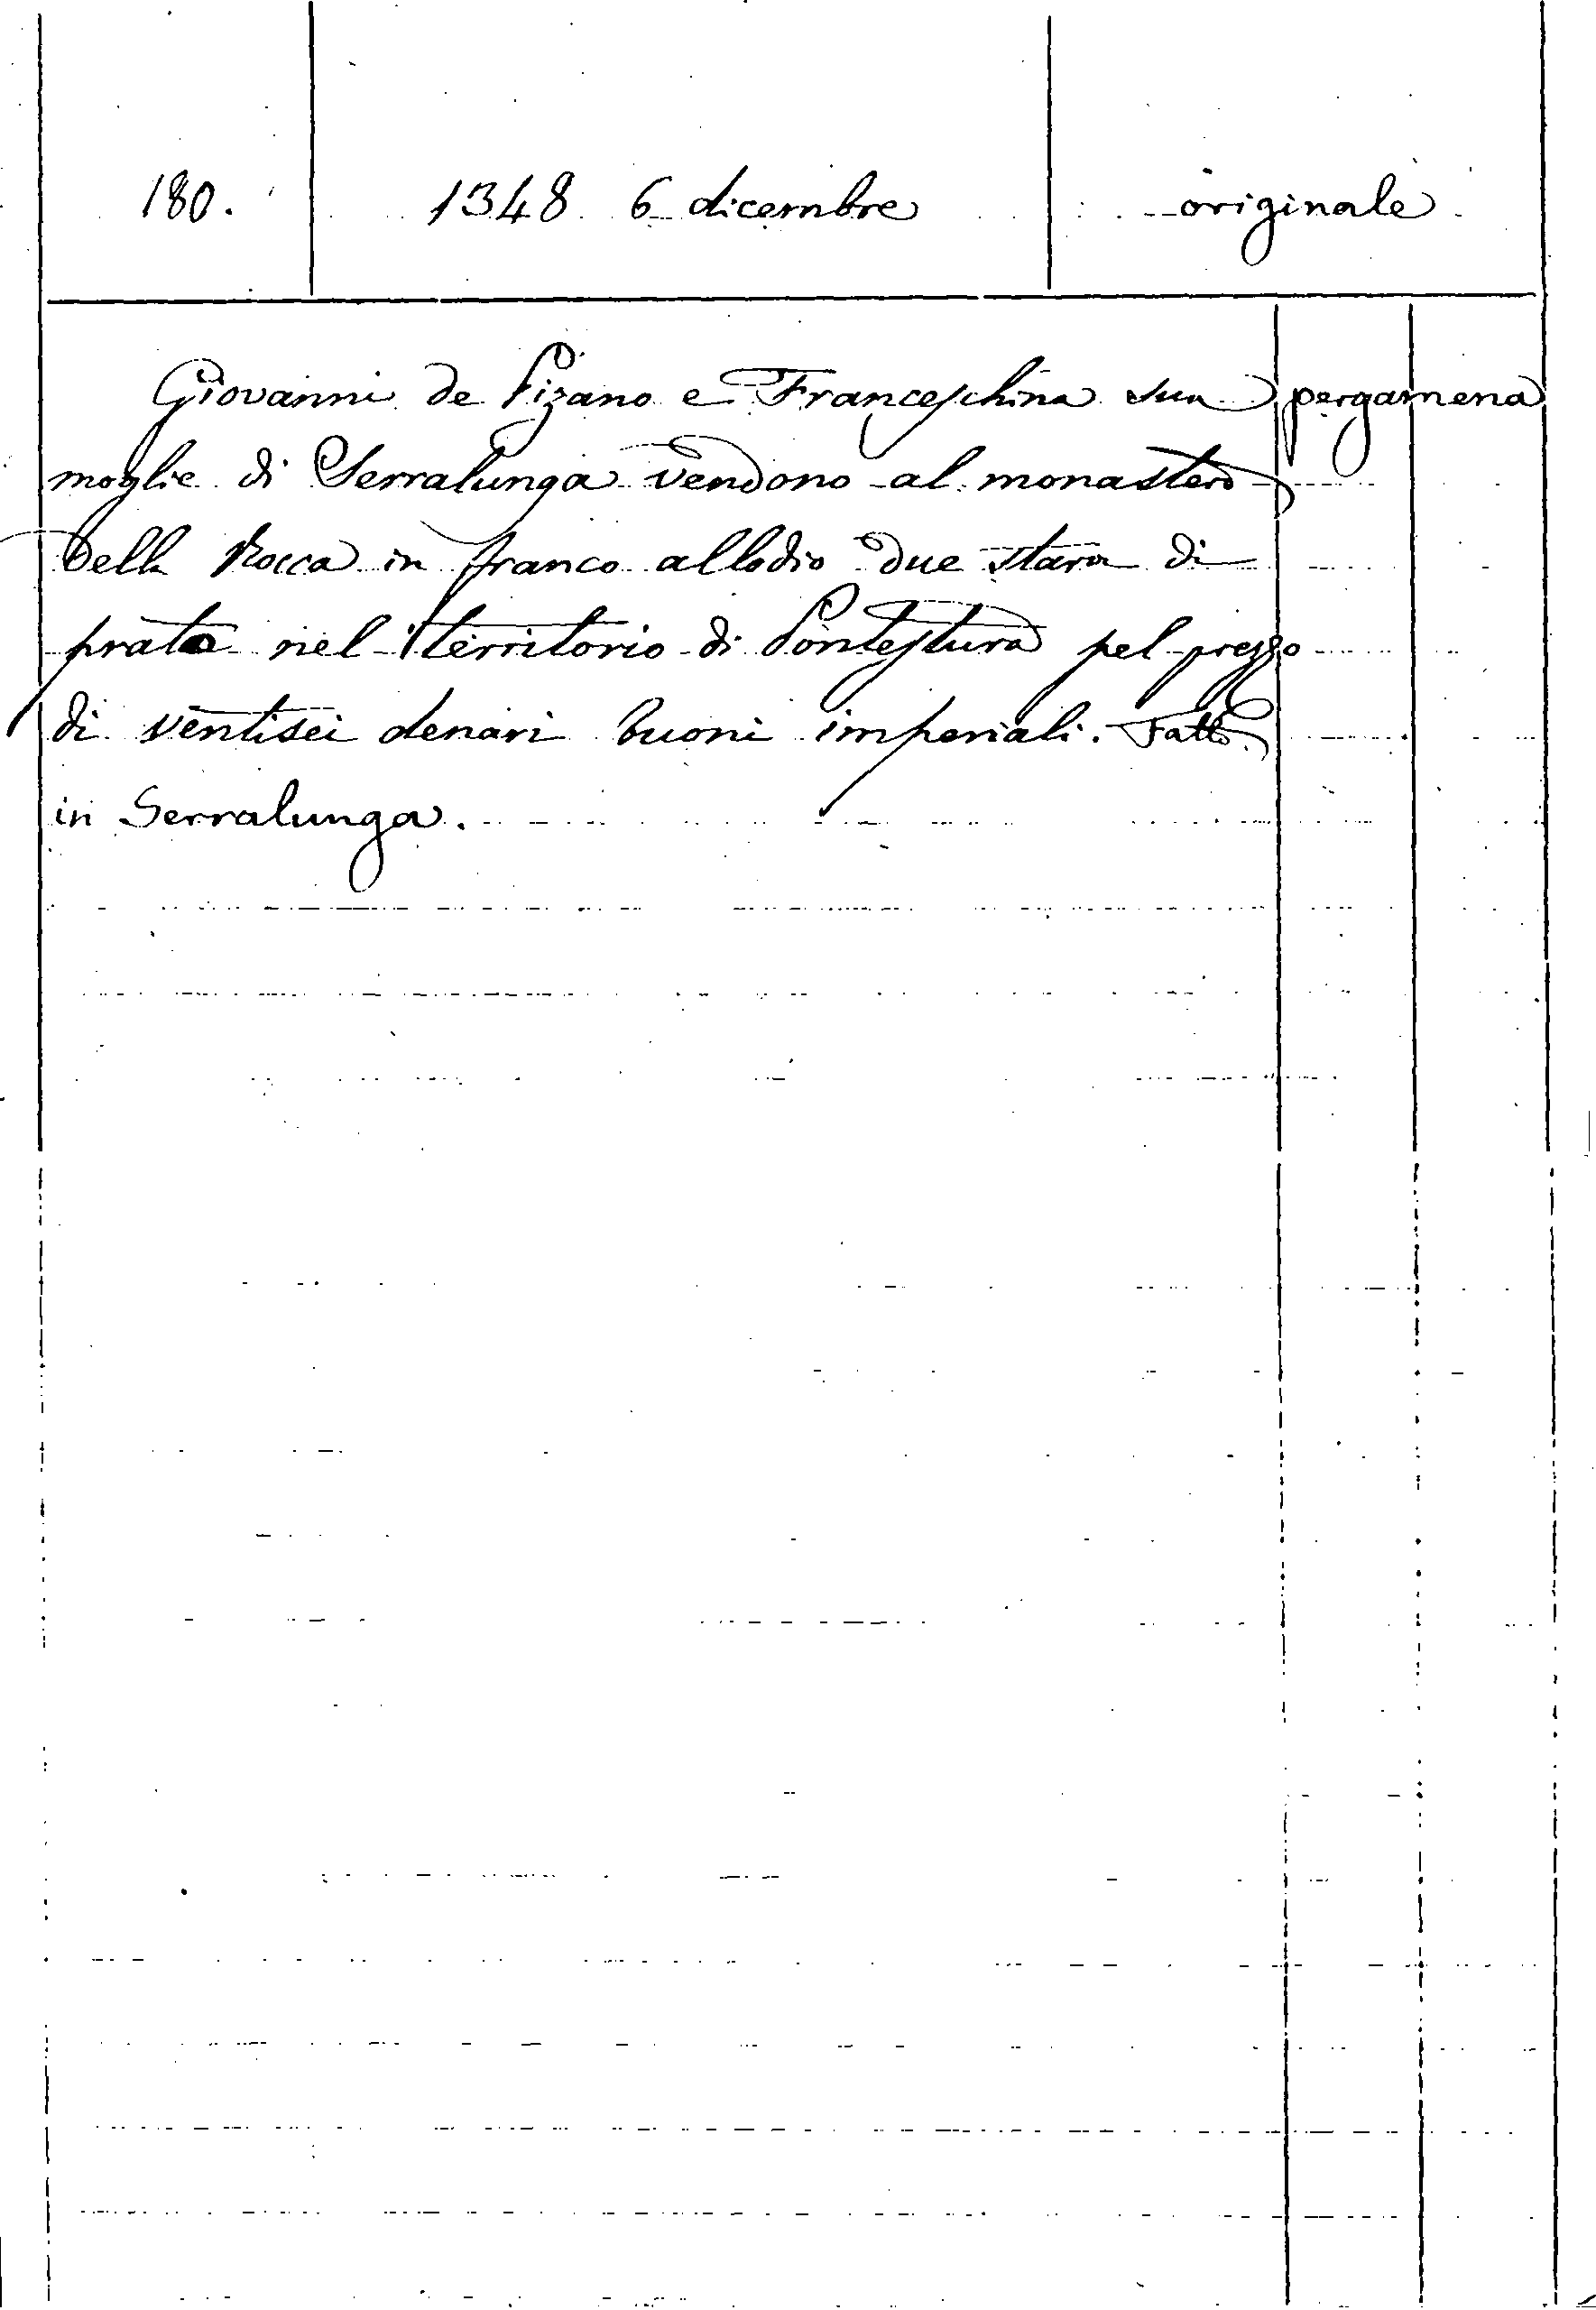 180. 1348 6 dicembre originale
Giovanni de Pizano e Franceschina sua pergamena
moglie di Serralunga vendono al monastero
della Rocca in franco allodio due stara di
prato nel territorio di Pontestura pel prezzo
di ventisei denari buoni imperiali. Fatto
in Serralunga.